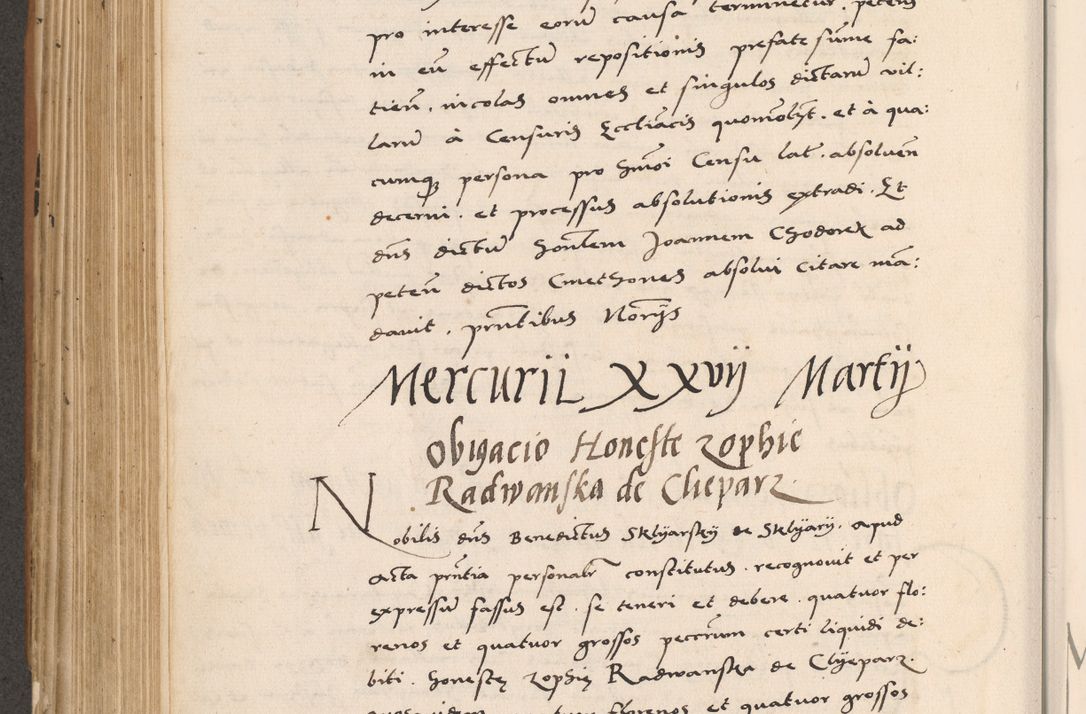 pro interesse eorũ causa terminetur, peteñ
in eũ effectũ repositionis prefate sũme fa:
tieñ. nicolas omnes et singulos dictarũ vil:
larũ à Censuris Eccliãcis quomõlzt. et à qua:
cumq₃ persona pro hmõi Censu lat. absolveñ
decerni. et processus absolutionis extradi. Et
dñs dictũ honẽtem Joannem Chodorek ad
peteñ dictos Cmethones absolui citare mã:
davit, prñtibus Norĩjs
Mercurii XXvij Martij
Obligacio Honeste zophie
Radwanska de Cleparz
Nobilis dñs Benedictus Sklyarsky de Sklyary. apud
acta prñtia personalr̃ constitutus. recognovit et per
expressũ fassus est. se teneri et debere. quatuor flo:
renos et quatuor grossos peccr̃um certi liquidi de:
biti. honestę zophię Radwanska de Clyeparz.
florenos et quatuor grossos